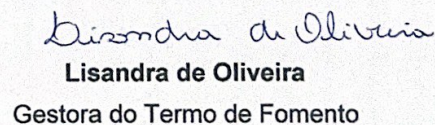 Lisandra de Oliveira
Lisandra de Oliveira
Gestora do Termo de Fomento